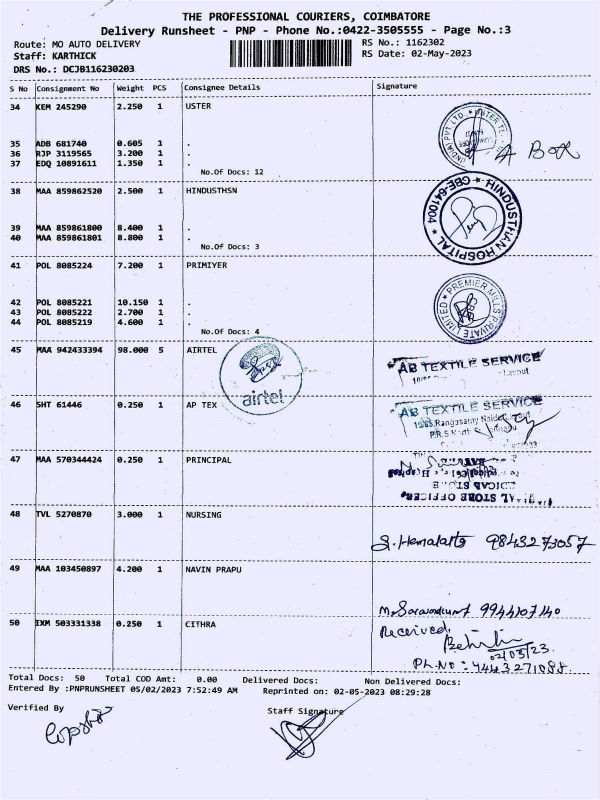 THE PROFESSIONAL COURIERS, COIMBATORE
Delivery Runsheet - PNP - Phone No.:0422-3505555 - Page No.:3
Route: MO AUTO DELIVERY RS No.: 1162302
Staff: KARTHICK RS Date: 02-May-2023
DRS No.: DCJB116230203
S No Consignment No Weight PCS Consignee Details Signature
34 KEM 245290 2.250 1 USTER
35 ADB 681740 0.605 1 .
36 RJP 3119565 3.200 1 .
37 EDQ 10891611 1.350 1 .
No.Of Docs: 12
38 MAA 859862520 2.500 1 HINDUSTHSN
HINDUSTHAN HOSPITAL * CBE-641004 *
39 MAA 859861800 8.400 1 .
40 MAA 859861801 8.800 1 .
No.Of Docs: 3
41 POL 8085224 7.200 1 PRIMIYER
PREMIER MILLS PRIVATE LIMITED *
42 POL 8085221 10.150 1 .
43 POL 8085222 2.700 1 .
44 POL 8085219 4.600 1 .
No.Of Docs: 4
45 MAA 942433394 98.000 5 AIRTEL
airtel
AB TEXTILE SERVICE
46 SHT 61446 0.250 1 AP TEX
AB TEXTILE SERVICE
47 MAA 570344424 0.250 1 PRINCIPAL
48 TVL 5270870 3.000 1 NURSING
S. Hemalatha 9843273057
49 MAA 103450897 4.200 1 NAVIN PRAPU
9944107140
50 IXM 503331338 0.250 1 CITHRA
Received
02/05/23
Ph.No:
Total Docs: 50 Total COD Amt: 0.00 Delivered Docs: Non Delivered Docs:
Entered By :PNPRUNSHEET 05/02/2023 7:52:49 AM Reprinted on: 02-05-2023 08:29:28
Verified By Staff Signature